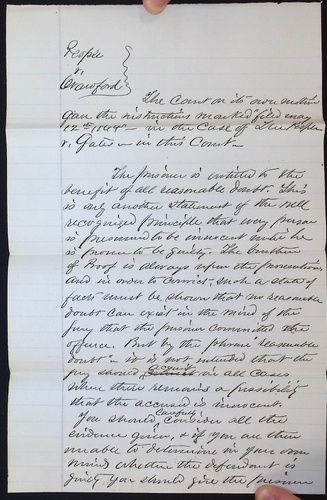 People
v.
Crawford
The Court on its own motion
gave the instructions marked "filed May
12th 1864" in the case of The People
v. Gates in this Court.
The prisoner is entitled to the
benefit of all reasonable doubt. This
is only another statement of the well
recognized principle that every person
is presumed to be innocent until he
is proven to be guilty. The burthen
of Proof is always upon the prosecution
and in order to convict, such a state of
facts must be shown that no reasonable
doubt can exist in the mind of the
Jury that the prisoner committed the
offence. But by the phrase "reasonable
doubt" it is not intended that the
jury should acquit in all cases
when there remains a possibility
that the accused is innocent.
You should carefully consider all the
evidence given, & if you are then
unable to determine in your own
mind whether the defendant is
guilty You should give the prisoner